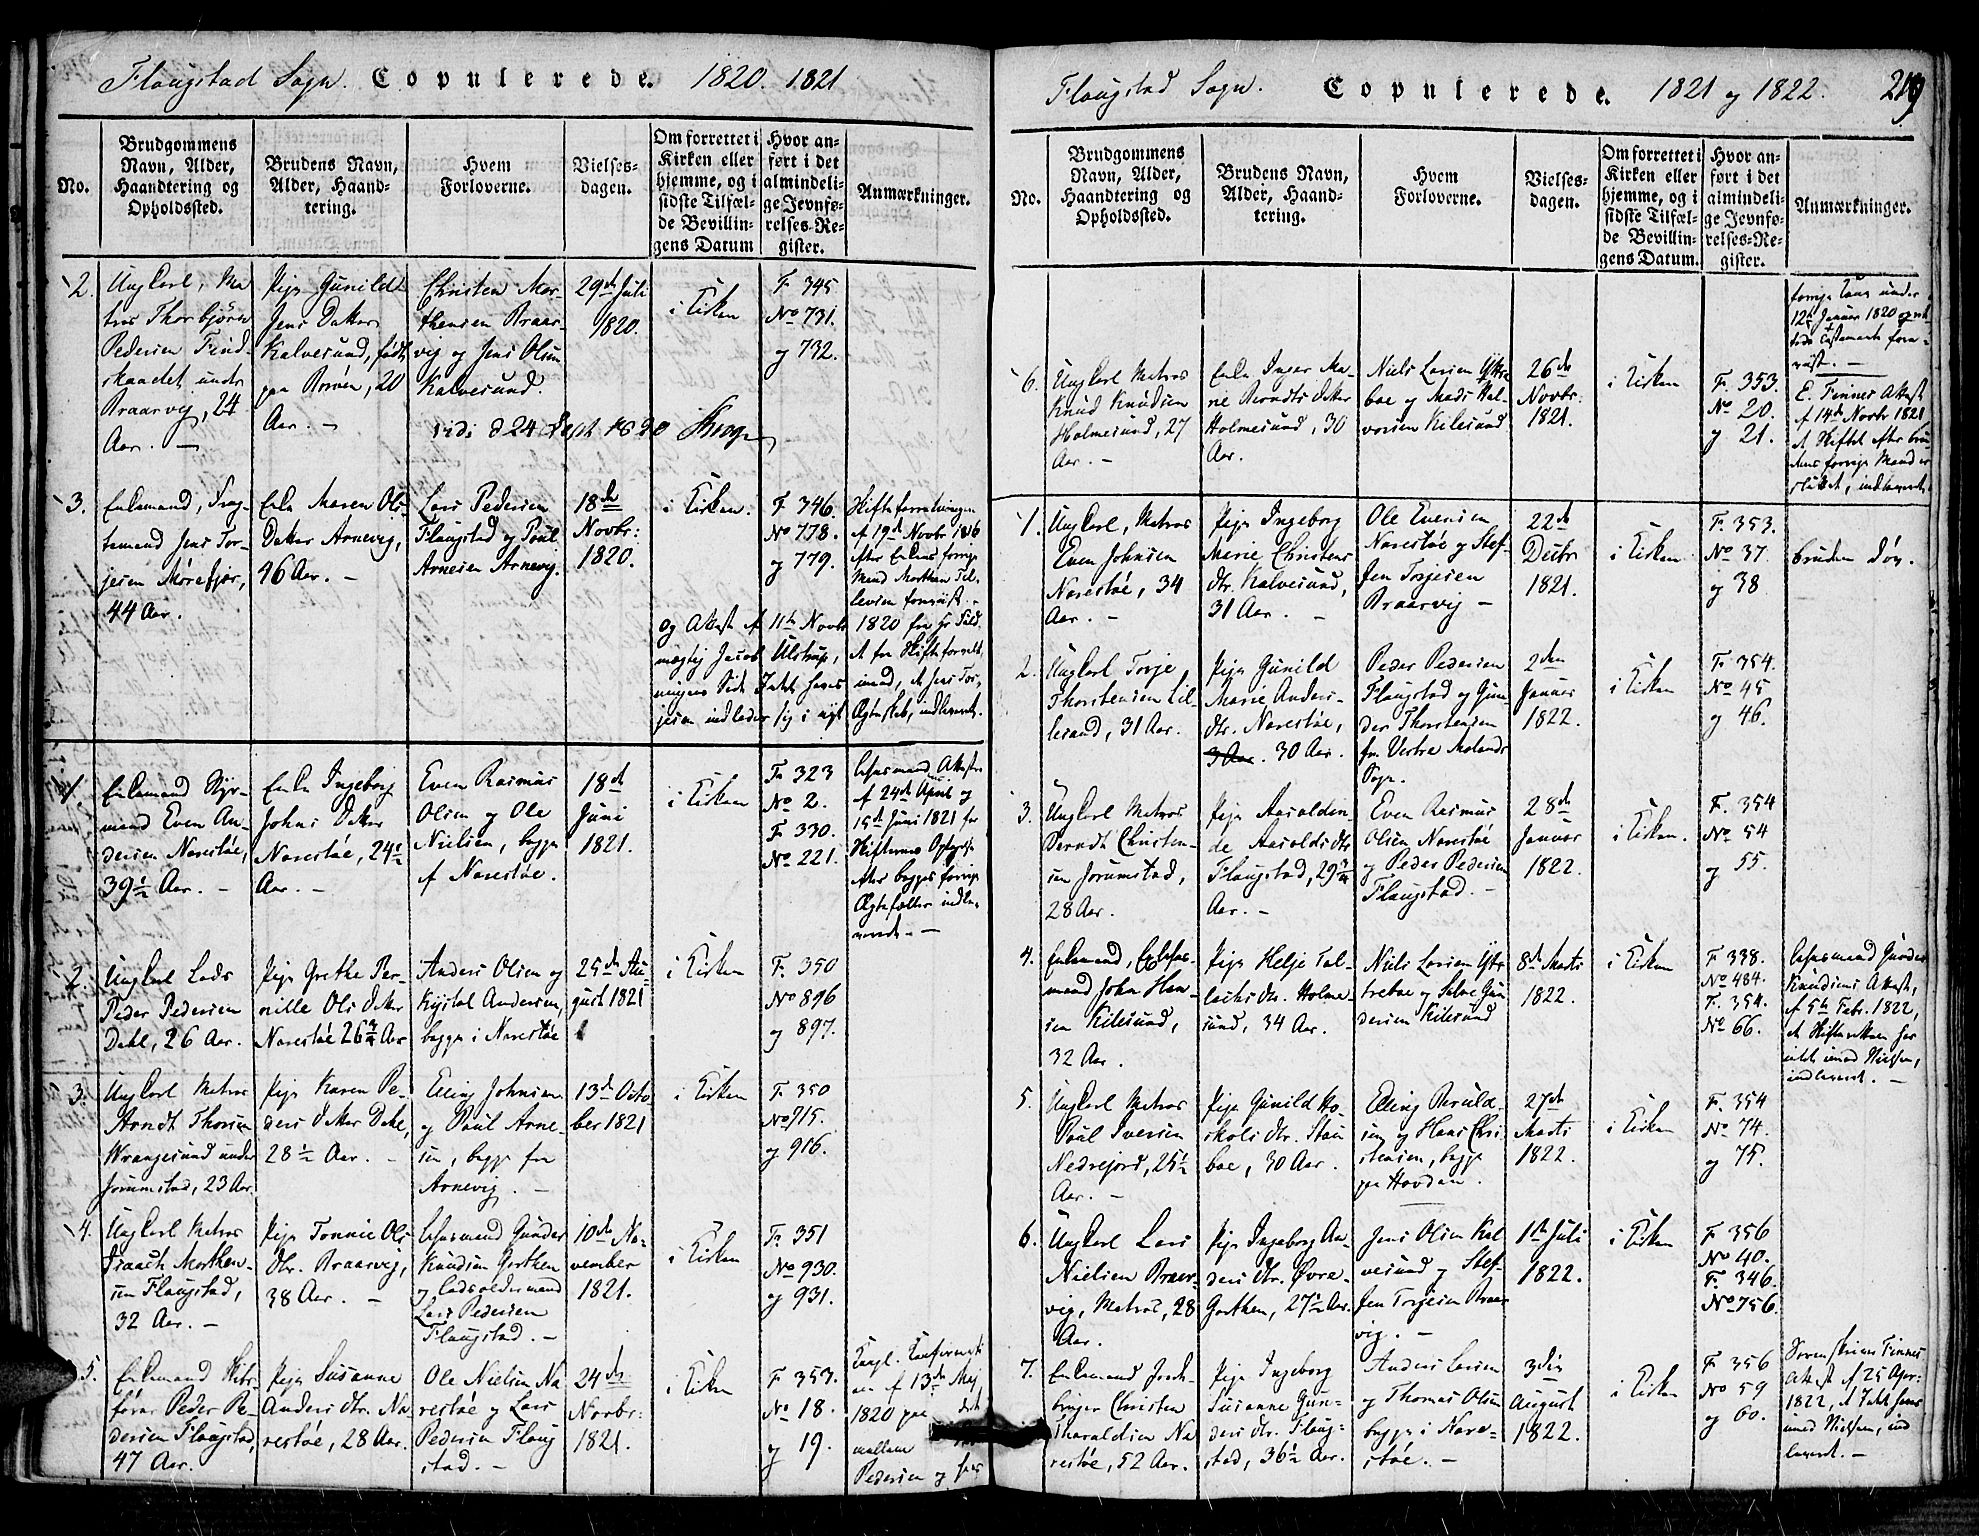 Flaugstad Sogn. Copulerede. 1820. 1821
No.
Brudgommens Navn, Alder, Haandtering og Opholdssted.
Brudens Navn, Alder, Haandtering.
Hvem Forloverne.
Vielsesdagen.
Om forrettet i Kirken eller hjemme, og i sidste Tilfælde Bevillingens Datum
Hvor anført i det almindelige Jevnførelses-Register.
Anmærkninger.
2.
Ungkarl, Ma
tros Thorbjörn
Pedersen Find
skaadet under
Braarvig, 24
Aar. —
Pige Gunild
Jens Datter
Kalvesund, født
paa Boröen, 20
Aar. —
Christen Mor
thensen Braar
vig og Jens Olsen
Kalvesund.
29de Juli
1820.
i Kirken
F. 345
No 731.
og 732.
Vidi d 24 Sept 1820 Krog
3.
Enkemand, Frag
temand Jens Tor
jesen Mörefjær,
44 Aar.
Enke Maren Ols
Datter Arnevig,
46 Aar. —
Lars Pedersen
Flaugstad og Poul
Arnesen Arnevig.
18de
Novbr:
1820.
i Kirken.
F. 346
No 778.
og 779.
Skifteforretningen
af 19de Novbr 1816
efter Enkens forrige
Mand Morthen Tel
levsen foreviist. —
og Attest af 11te Novbr 1820 fra Hr Fuld
mægtig Jacob Ulstrup, at fra Skifteforvalt
ningens Side Intet haves imod, at Jens Tor
jesen indlader sig i nyt Ægteskab, indleveret.
1.
Enkemand Styr
mand Even An
dersen Narestöe,
39½ Aar. —
Enke Ingeborg
Johns Datter
Narestöe, 24½
Aar. —
Even Rasmus
Olsen og Ole
Nielsen, begge
af Narestöe.
18de
Juni
1821.
i Kirken
F. 323
No 2.
F. 330.
No 221.
Lensmand Attester
af 24de April og
15de Juni 1821 for
Skifternes Opgjørelse
efter begges forrige
Ægtefæller indle
verede. —
2.
Ungkarl Lods
Peder Pedersen
Dahl, 26 Aar.
Pige Grethe Per
nille Ols Datter
Narestöe 26¾ Aar
Anders Olsen og
Kristal Andersen,
begge i Narestöe
25de Au
gust 1821
i Kirken
F. 350
No 896
og 897.
3.
Ungkarl Matros
Arndt Thorsen
Wrangesund under
Jorumstad, 23 Aar
Pige Karen Pe
ders Datter Dahl,
28½ Aar. —
Elling Johnsen
og Poul Arne
sen, begge fra
Arnevig. —
13de Octo
ber 1821
i Kirken
F. 350
No 915.
og 916.
4.
Ungkarl Matros
Isaach Morthen
sen Flaugstad,
32 Aar. —
Pige Tonnie Ols
Dtr. Braarvig,
38 Aar. —
Lensmand Gunder
Knudsen Garthen
og Lodsoldermand
Lars Pedersen
Flaugstad. —
10de No
vember
1821.
i Kirken
F. 351
No 930.
og 931.
5.
Enkemand Skibs
förer Peder Pe
dersen Flaugstad,
47 Aar.
Pige Susanne
Anders Dtr. Na
restöe, 28 Aar.
Ole Nielsen Na
restöe og Lars
Pedersen Flaug
stad. —
24de
Novbr:
1821.
i Kirken
F. 353.
No 18.
og 19.
Kongl. Confirmati
on af 13de Maj
1820 paa det
mellem
Pedersen og hans
Flaugstad Sogn. Copulerede. 1821 og 1822. 219
No.
Brudgommens Navn, Alder, Haandtering og Opholdssted.
Brudens Navn, Alder, Haandtering.
Hvem Forloverne.
Vielsesdagen.
Om forrettet i Kirken eller hjemme, og i sidste Tilfælde Bevillingens Datum.
Hvor anført i det almindelige Jevnførelses-Register.
Anmærkninger.
forrige Kone under
12te Januar 1820 opret
tede Testamente fore
viist. —
6.
Ungkarl Matros
Knud Knudsen
Holmesund, 27
Aar. —
Enke Inger Ma
rie Berndts Datter
Holmesund, 30
Aar.
Niels Larsen Yttre
boe og Mads Hal
vorsen Kilesund
26de
Novbr:
1821.
i Kirken
F. 353.
No 20.
og 21.
E. Finnes Attest
af 14de Novbr 1821
at Skiftet efter Bru
dens forrige Mand er
sluttet, indleveret.
1.
Ungkarl, Matros
Even Johnsen
Narestöe, 34
Aar. —
Pige Ingeborg
Marie Christens
dtr. Kalvesund,
31 Aar. —
Ole Evensen
Narestöe og Stef
fen Torjesen
Braarvig —
22de
Decbr
1821.
i Kirken
F. 353.
No 37.
og 38
Bruden döv.
2.
Ungkarl, Torje
Thorstensen Lil
lesand, 31 Aar.
Pige Gunild
Marie Anders
dtr. Narestöe,
3 Aar. 30 Aar.
Peder Pedersen
Flaugstad og Gun
der Thorstensen
fra Vestre Molands
Sogn.
2den
Januar
1822.
i Kirken
F. 354.
No 45
og 46.
3.
Ungkarl Matros
Berndt Christen
sen Jorumstad,
28 Aar.
Pige Aasolden
de Aasolds dtr
Flaugstad, 29¾
Aar. —
Even Rasmus
Olsen Narestöe
og Peder Pedersen
Flaugstad. —
28de
Januar
1822.
i Kirken.
F. 354
No 54
og 55.
4.
Enkemand,
mand John Han
sen Kilesund,
32 Aar.
Pige Helje Tal
lachs dtr. Holme
sund, 34 Aar.
Niels Larsen Yt
treboe og Salve Gun
dersen Kilesund
8de Marts
1822.
i Kirken
F. 338.
No 484.
F. 354.
No 66.
Lensmand Gunder
Knudsens Attest,
af 5te Febr. 1822,
at Skifteretten har
intet imod Vielsen,
indleveret. —
5.
Ungkarl Matros
Poul Iversen
Nedrejord, 25½
Aar. —
Pige Gunild Ho
skols dtr. Stau
boe, 30 Aar.
Elling Beruld
sen og Hans Chri
stensen, begge
paa Havdan.
27de
Marts
1822.
i Kirken
F. 354
No 74.
og 75.
6.
Ungkarl Lars
Nielsen Braar
vig, Matros, 28
Aar.
Pige Ingeborg An
ders dtr. Øvre
Garthen, 27½ Aar.
Jens Olsen Kal
vesund og Stef
fen Torjesen Braar
vig. —
1ste Juli
1822.
i Kirken
F. 356
No 40.
F. 346.
No 756.
7.
Enkemand
Christen
Tharaldsen Na
restöe, 52 Aar.
Pige Ingeborg
Susanne Gun
ders dtr. Flaug
stad, 36½ Aar.
Anders Larsen
og Thomas Olsen
begge i Nare
stöe. —
3die
August
1822.
i Kirken
F. 356
No 59
og 60.
Sorenskriver Finnes
Attest af 25 Apr:
1822, at Intet haves
imod Vielsen, ind
leveret. —